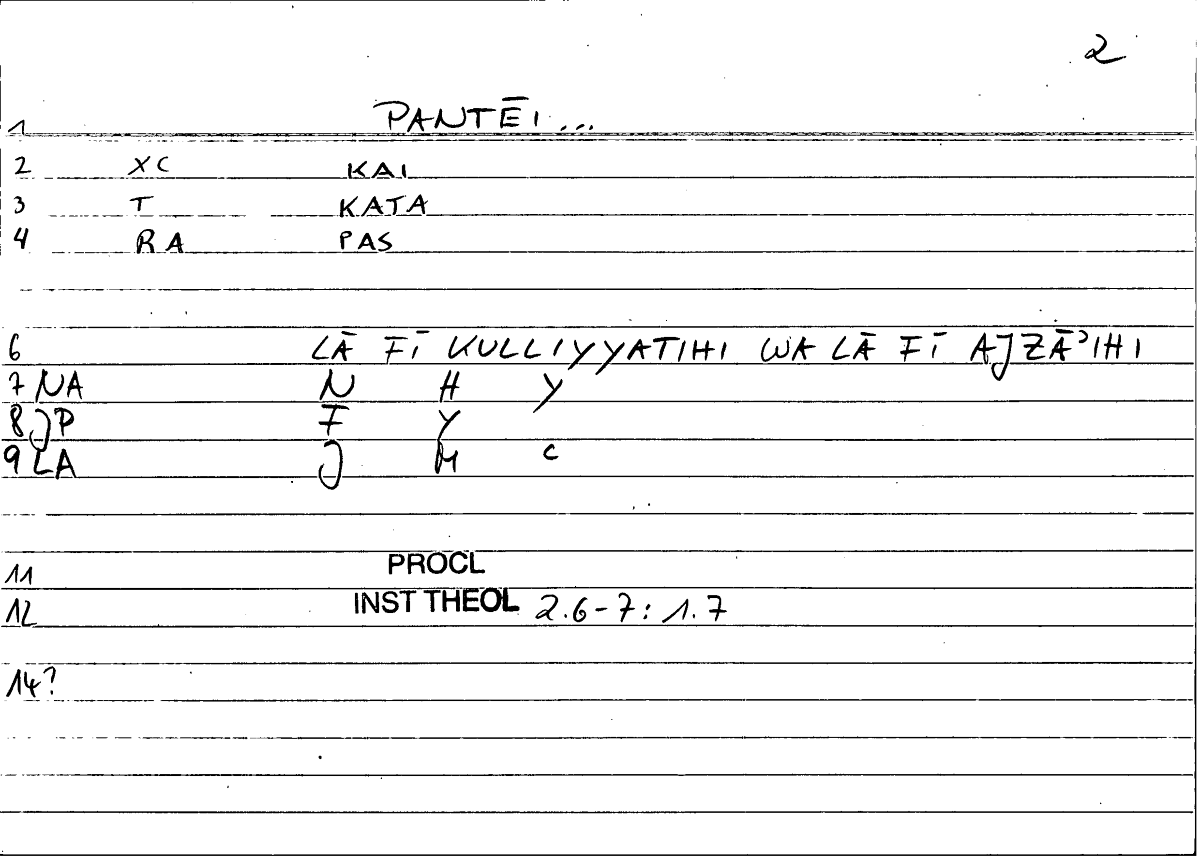 2
1 PANTĒI...
2 XC KAI
3 T KATA
4 RA PAS
6 LĀ FĪ KULLIYYATIHI WA LĀ FĪ AJZĀʾIHI
7 NA N H Y
8 JP F Y
9 LA J M C
11 PROCL
12 INST THEOL 2.6-7: 1.7
14?